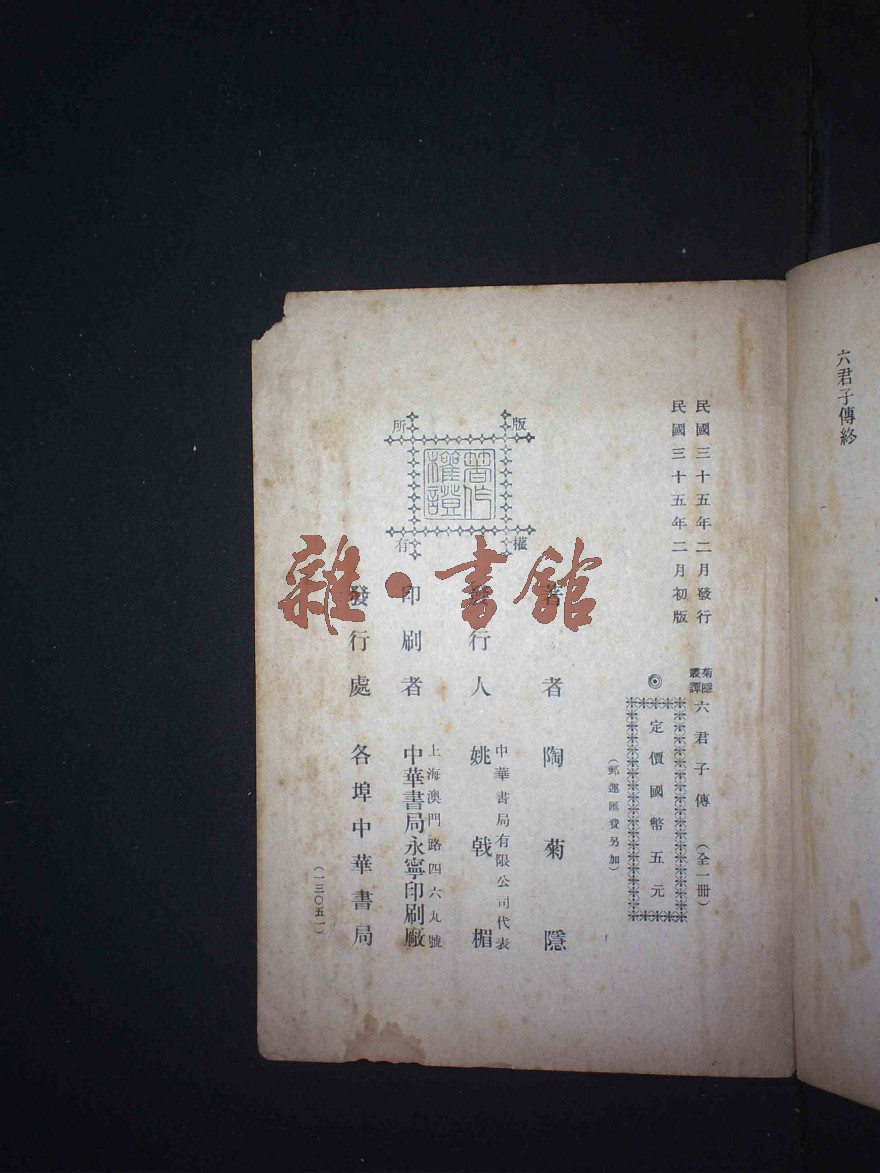 六君子傳終
民國三十五年二月發行
民國三十五年二月初版
菊隱叢譚 六君子傳 (全一冊)
◎ 定價國幣五元
(郵運匯費另加)
著者 陶菊隱
發行人 中華書局有限公司代表 姚戟楣
印刷者 上海澳門路四六九號 中華書局永寧印刷廠
發行處 各埠中華書局
(一三〇五一)
版權所有
著作權證
雜·書館